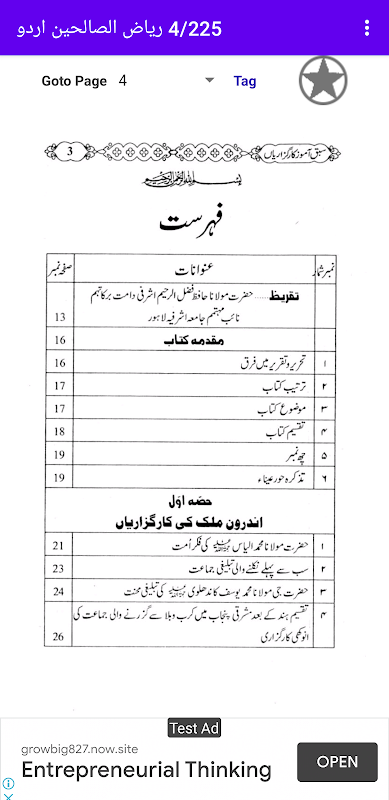 4/225 ریاض الصالحین اردو
Goto Page 4 Tag
سبق آموز کارگزاریاں 3
بسم اللہ الرحمن الرحیم
فہرست
نمبر شمار عنوانات صفحہ نمبر
تقریظ...... حضرت مولانا حافظ فضل الرحیم اشرفی دامت برکاتہم
نائب مہتمم جامعہ اشرفیہ لاہور 13
مقدمہ کتاب 16
۱ تحریر و تقریر میں فرق 16
۲ ترتیب کتاب 17
۳ موضوع کتاب 17
۴ تقسیم کتاب 18
۵ چھ نمبر 19
۶ تذکرہ حور عیناء 19
حصہ اوّل
اندرون ملک کی کارگزاریاں
۱ حضرت مولانا محمد الیاس رحمۃ اللہ علیہ کی فکر اُمت 21
۲ سب سے پہلے نکلنے والی تبلیغی جماعت 23
۳ حضرت جی مولانا محمد یوسف کاندھلوی رحمۃ اللہ علیہ کی تبلیغی محنت 24
۴ تقسیم ہند کے بعد مشرقی پنجاب میں کرب و بلا سے گزرنے والی جماعت کی
انوکھی کارگزاری 26
Test Ad
growbig827.now.site
Entrepreneurial Thinking
OPEN